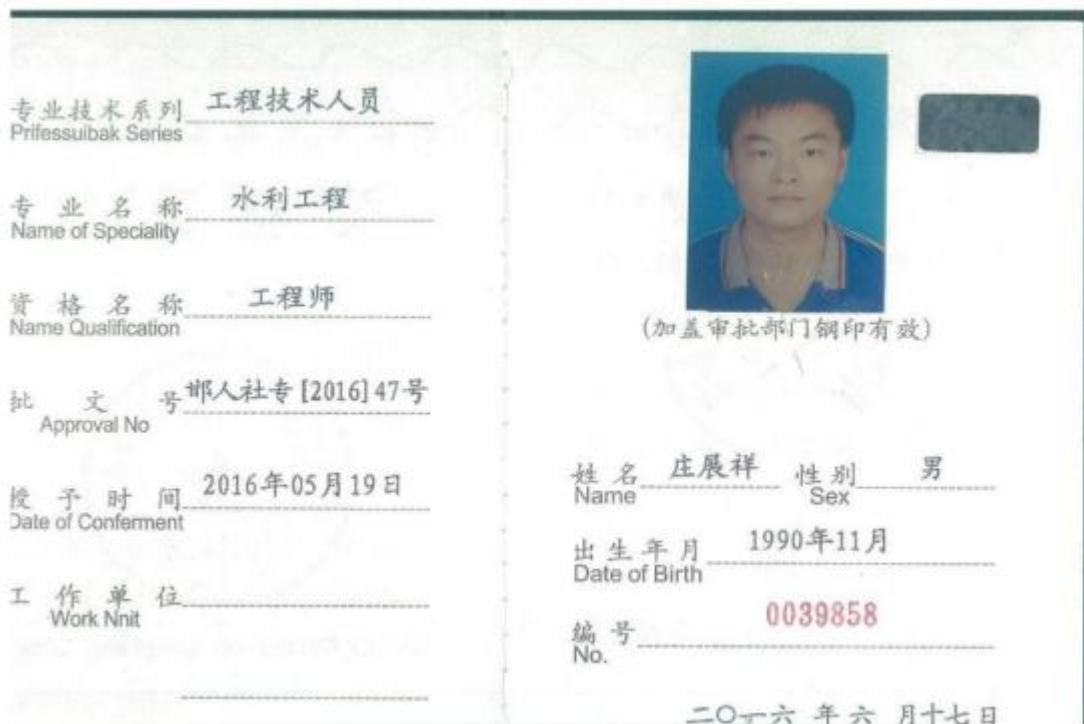 专业技术系列 工程技术人员
Prifessuibak Series
专业名称 水利工程
Name of Speciality
资格名称 工程师
Name Qualification
批文号 邯人社专 [2016] 47号
Approval No
授予时间 2016年05月19日
Date of Conferment
工作单位
Work Nnit
(加盖审批部门钢印有效)
姓名 庄展祥 性别 男
Name Sex
出生年月 1990年11月
Date of Birth
编号 0039858
No.
二〇一六 年 六 月十七日